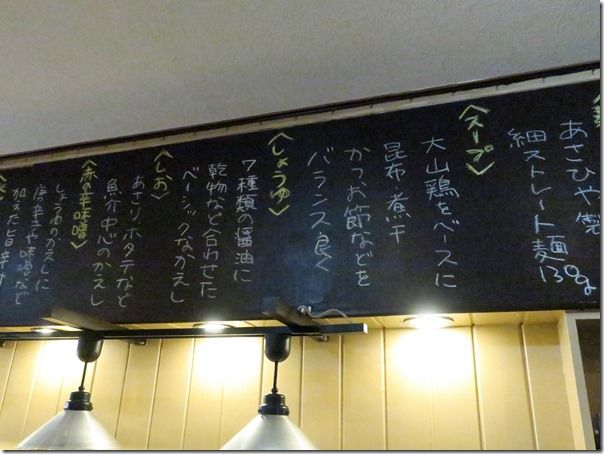 あさひや製
細ストレート麺130g
〈スープ〉
大山鶏をベースに
昆布・煮干
かつお節などを
バランス良く
〈しょうゆ〉
7種類の醤油に
乾物など合わせた
ベーシックなかえし
〈しお〉
あさり・ホタテなど
魚介中心のかえし
〈赤の辛味噌〉
しょうゆのかえしに
唐辛子や味噌など
加えた旨辛